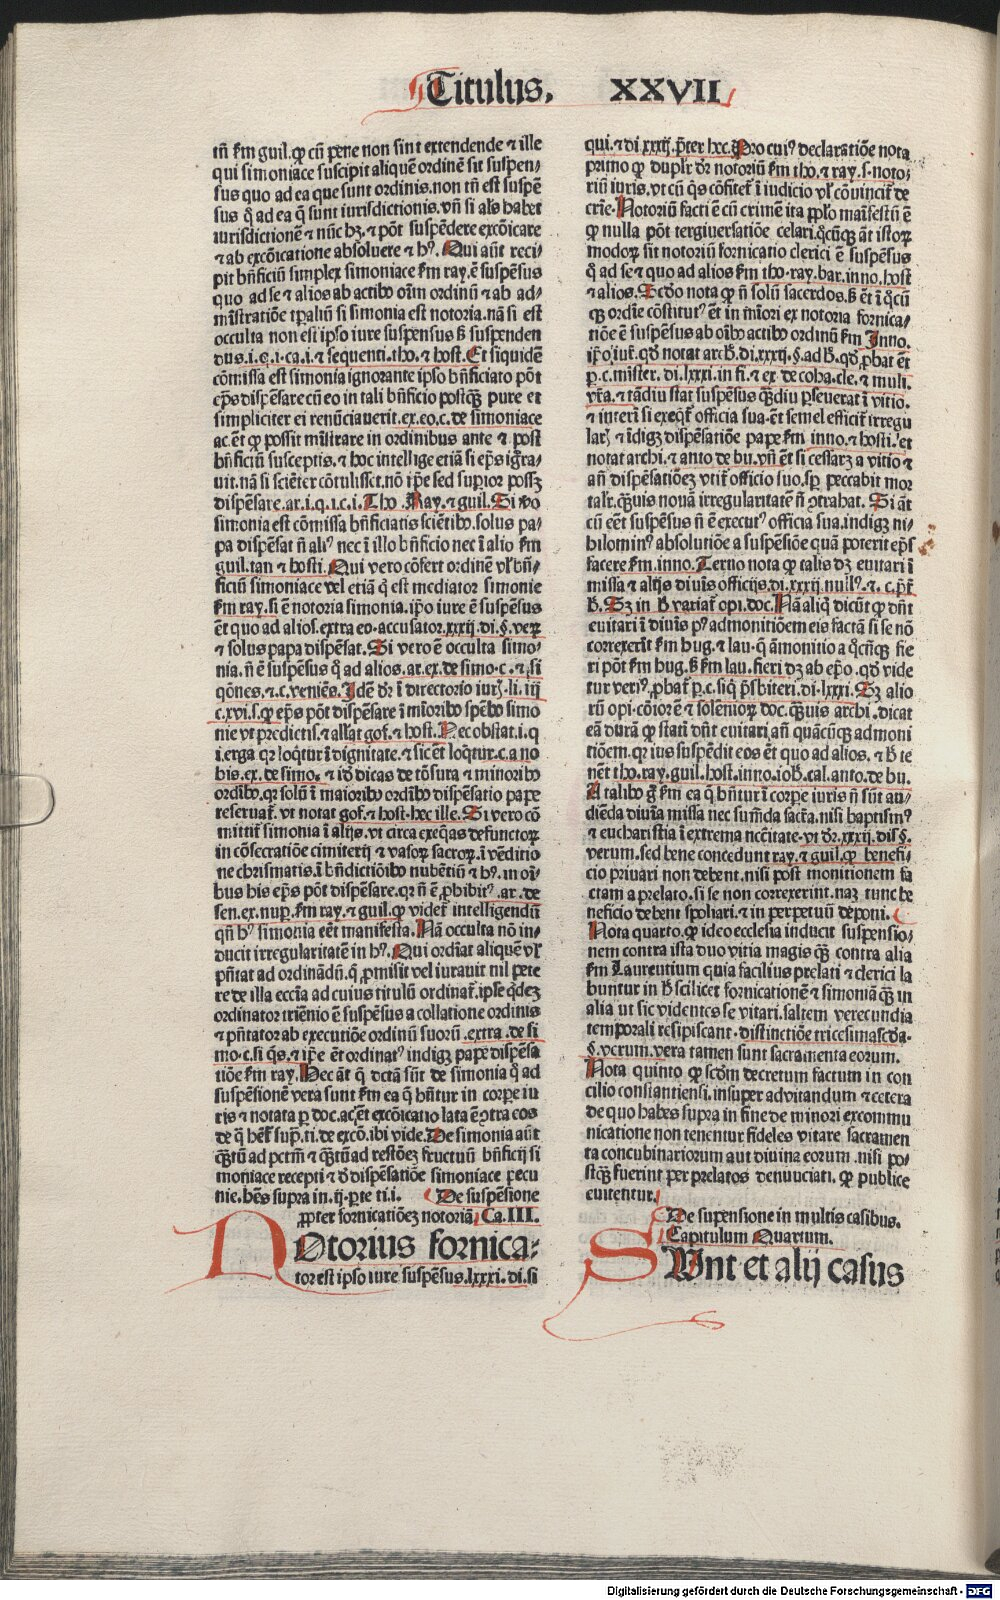 Titulus. XXVII
tñ ẜm guil. ꝙ cũ pene non sint extendende ⁊ ille
qui simoniace suscipit aliquẽ ordinẽ sit suspen-
sus quo ad ea que sunt ordinis. non tñ est suspẽ
sus q̃ ad ea q̃ sunt iurisdictionis. vñ si als habet
iurisdictionẽ ⁊ nũc hꝫ. ⁊ põt suspẽdere excõicare
⁊ ab excõicatione absoluere ⁊ hꝰ. Qui aũt reci-
pit bñficiũ simplex simoniace ẜm ray. ẽ suspẽsus
quo ad se ⁊ alios ab actibꝰ oĩm ordinũ ⁊ ab ad-
mĩstratiõe tꝑaliũ si simonia est notoria. nã si est
occulta non est ipso iure suspensus ꜩ suspenden
dus. i. q. i. ca. i. ⁊ sequenti. tho. ⁊ host. Et siquidẽ
cõmissa est simonia ignorante ipso bñficiato põt
eṕs dispẽsare cũ eo in tali bñficio postqꝫ pure et
simpliciter ei renũciauerit. ex. eo. c. de simoniace
ac. ẽt ꝙ possit mĩstrare in ordinibus ante ⁊ post
bñficiũ susceptis. ⁊ hoc intellige etiã si eṕs igñra-
uit. nã si sciẽter cõtulisset. nõ iṕe sed suꝑior possꝫ
dispẽsare. ar. i. q. i. c. i. Tho. Ray. ⁊ guil. Si vo
simonia est cõmissa bñficiatis sciẽtibꝰ. solus pa-
pa dispẽsat ñ aliꝰ nec ĩ illo bñficio nec ĩ alio ẜm
guil. tan ⁊ hosti. Qui vero cõfert ordinẽ vĺ bñ-
ficiũ simoniace vel etiã q̃ est mediator simonie
ẜm ray. si ẽ notoria simonia. iṕo iure ẽ suspẽsus
ẽt quo ad alios. extra eo. accusatoꝝ. xxxij. di. §. veꝝ
⁊ solus papa dispẽsat. Si vero ẽ occulta simo-
nia. ñ ẽ suspẽsus q̃ ad alios. ar. ex. de simo. c. ⁊ si
qõnes. ⁊ c. veniẽs. Idẽ dr̃ ĩ directorio iurꝭ. li. iij
c. xvi. s. ꝙ eṕs põt dispẽsare ĩ mĩoribꝰ spẽbꝰ simo
nie vt predictis. ⁊ allat gof. ⁊ host. Nec obstat. i. q
i. erga qꝛ loq̃tur ĩ dignitate. ⁊ sic ẽt loq̃tur. c. a no
bis. ex. de simo. ⁊ iõ dicas de tõsura ⁊ minoribꝰ
ordibꝰ. qꝛ solũ ĩ maioribꝰ ordĩbꝰ dispẽsatio pape
reseruat̃. vt notat gof. ⁊ host. hec ille. Si vero cõ
mittit̃ simonia ĩ alijs. vt circa exeq̃as defunctoꝝ
in cõsecratiõe cimiterij ⁊ vasoꝝ sacroꝝ. ĩ vẽditio
ne chrismatis. ĩ bñdictiõibꝰ nubẽtiũ ⁊ hꝰ. in oĩ-
bus his eṕs põt dispẽsare. qꝛ ñ ẽ ꝓhibitꝰ. ar. de
sen. ex. nuꝑ. ẜm ray. ⁊ guil. ꝙ videt̃ intelligendũ
qñ hꝰ simonia eẽt manifesta. Nã occulta nõ in-
ducit irregularitatẽ in hꝰ. Qui ordĩat aliquẽ vĺ
pñtat ad ordinãdũ. q̃ ꝓmisit vel iurauit nil pete
re de illa ecc̃ia ad cuius titulũ ordinat̃. ipse q̃dez
ordinator triẽnio ẽ suspẽsus a collatione ordinis
⁊ pñtator ab executiõe ordinũ suorũ. extra. de si
mo. c. si q̃s. ⁊ iṕe ẽt ordinatꝰ indigꝫ pape dispẽsa
tiõe ẜm ray. Hec aũt q̃ dcã sũt de simonia q̃ ad
suspẽsionẽ vera sunt ẜm ea q̃ hñtur in corꝑe iu
ris ⁊ notata ꝑ doc. ac. ẽt excõicatio lata ẽ ꝯtra eos
de q̃ het̃ suṕ. ti. de excõ. ibi vide. De simonia aũt
q̃tũ ad pctm̃ ⁊ q̃tũ ad restõez fructuũ bñficij si
moniace recepti ⁊ d̃ dispẽsatiõe simoniace pecu
nie. hẽs supra in. ij. ꝑte ti. i. De suspẽsione
ꝓpter fornicatiõez notoriã. Ca. III.
NOtorius fornica-
tor est ipso iure suspẽsus. lxxxi. di. si
qui. ⁊ di xxxij. p̃ter hec. Pro cuiꝰ declaratiõe nota
primo ꝙ dupĺr dr̃ notoriũ ẜm tho. ⁊ ray. s. noto-
riũ iuris. vt cũ q̃s cõfitet̃ ĩ iudicio vĺ cõuincit̃ de
crĩe. Notoriũ facti ẽ cũ crimẽ ita ꝓṕlo maĩfestũ ẽ
ꝙ nulla põt tergiuersatiõe celari. q̃cũqꝫ aũt istoꝝ
modoꝝ sit notoriũ fornicatio clerici ẽ suspẽsus
q̃ ad se ⁊ quo ad alios ẜm tho. ray. bar. inno. host
⁊ alios. Scd̃o nota ꝙ ñ solũ sacerdos. ꜩ ẽt ĩ q̃cũ
qꝫ ordĩe cõstitutꝰ ẽt in mĩori ex notoria fornica-
tiõe ẽ suspẽsus ab oĩbꝰ actibꝰ ordinũ ẜm Inno.
iṕo iuř. qd̃ notat arch̃. di. xxxij. §. ad h̃. qd̃ ꝓbat ex
ꝑ. c. mĩster. di. lxxxi. in fi. ⁊ ex. de coha. cle. ⁊ muli.
vr̃a. ⁊ tãdiu stat suspẽsus q̃diu ꝑseuerat ĩ vitio.
⁊ interĩ si exeq̃t̃ officia sua. ẽt semel efficit̃ irregu
larꝭ ⁊ ĩdigꝫ dispẽsatiõe pape ẜm inno. ⁊ hosti. et
notat archi. ⁊ anto de bu. vñ ẽt si cessarꝫ a vitio ⁊
añ dispẽsatiõez vtit̃ officio suo. sꝑ peccabit mor
talr̃. q̃uis nouã irregularitatẽ ñ ꝯtrahat. Si aũt
cũ eẽt suspẽsus ñ ẽ executꝰ officia sua. indigꝫ ni-
hilominꝰ absolutiõe a suspẽsiõe quã poterit eṕs
facere ẜm. inno. Tertio nota ꝙ talis dꝫ euitari ĩ
missa ⁊ alijs diuĩs officijs. di. xxxij. nullꝰ. ⁊. c. p̃t̃
h̃. Sꝫ in h̃ variat̃ opi. doc. Nã aliq̃ dicũt ꝙ dñt
euitari ĩ diuĩs pꝰ admonitiõem eis factã si se nõ
correxerit ẜm hug. ⁊ lau. q̃ ãmonitio a q̃cũqꝫ fie
ri põt ẜm hug. ꜩ ẜm lau. fieri dꝫ ab eṕo. qd̃ vide
tur veriꝰ. ꝓbat̃ ꝑ. c. siq̃ pr̃sbiteri. di. lxxxi. Sꝫ alio
rũ opi. cõior ẽ ⁊ solẽnioꝝ doc. q̃uis archi. dicat
eã durã ꝙ statĩ dñt euitari. añ quãcũqꝫ admoni
tiõem. qꝛ ius suspẽdit eos ẽt quo ad alios. ⁊ h̃ te
nẽt tho. ray. guil. host. inno. ioh̃. cal. anto. de bu.
A talibꝰ g̃ ẜm ea q̃ hñtur ĩ corꝑe iuris ñ sũt au-
diẽda diuĩa missa nec sumẽda sacr̃a. nisi baptismꝰ
⁊ eucharistia ĩ extrema ncc̃itate. vt dr̃. xxxij. dis §.
verum. sed bene concedunt ray. ⁊ guil. ꝙ benefi-
cio priuari non debent. nisi post monitionem fa
ctam a prelato. si se non correxerint. naz tunc be
neficio debent spoliari. ⁊ in perpetuũ deponi.
Nota quarto. ꝙ ideo ecclesia inducit suspensio-
nem contra ista duo vitia magis q̃ contra alia
ẜm Laurentium quia facilius prelati ⁊ clerici la
buntur in h̃ scilicet fornicationẽ ⁊ simoniã q̃ in
alia ut sic videntes se vitari. saltem verecundia
temporali resipiscant. distinctiõe tricesimascd̃a.
§. verum. vera tamen sunt sacramenta eorum.
Nota quinto ꝙ scd̃m decretum factum in con
cilio constantiensi. insuper ad vitandum ⁊ cetera
de quo habes supra in fine de minori excommu
nicatione non tenentur fideles vitare sacramen
ta concubinariorum aut diuina eorum. nisi po-
stq̃ fuerint per prelatos denuuciati. ꝙ publice
euitentur.
De supensione in multis casibus.
Capitulum Quartum.
SUnt et alij casus
Digitalisierung gefördert durch die Deutsche Forschungsgemeinschaft - DFG